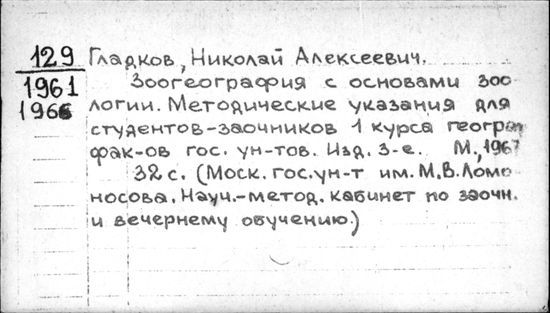 129 Гладков, Николай Алексеевич.
1961 Зоогеография с основами зоо
1966 логии. Методические указания для
студентов-заочников 1 курса географ
фак-ов гос. ун-тов. Изд. 3-е. М., 1967
32 с. (Моск. гос. ун-т им. М.В. Ломо
носова. Науч.-метод. кабинет по заочн.
и вечернему обучению.)